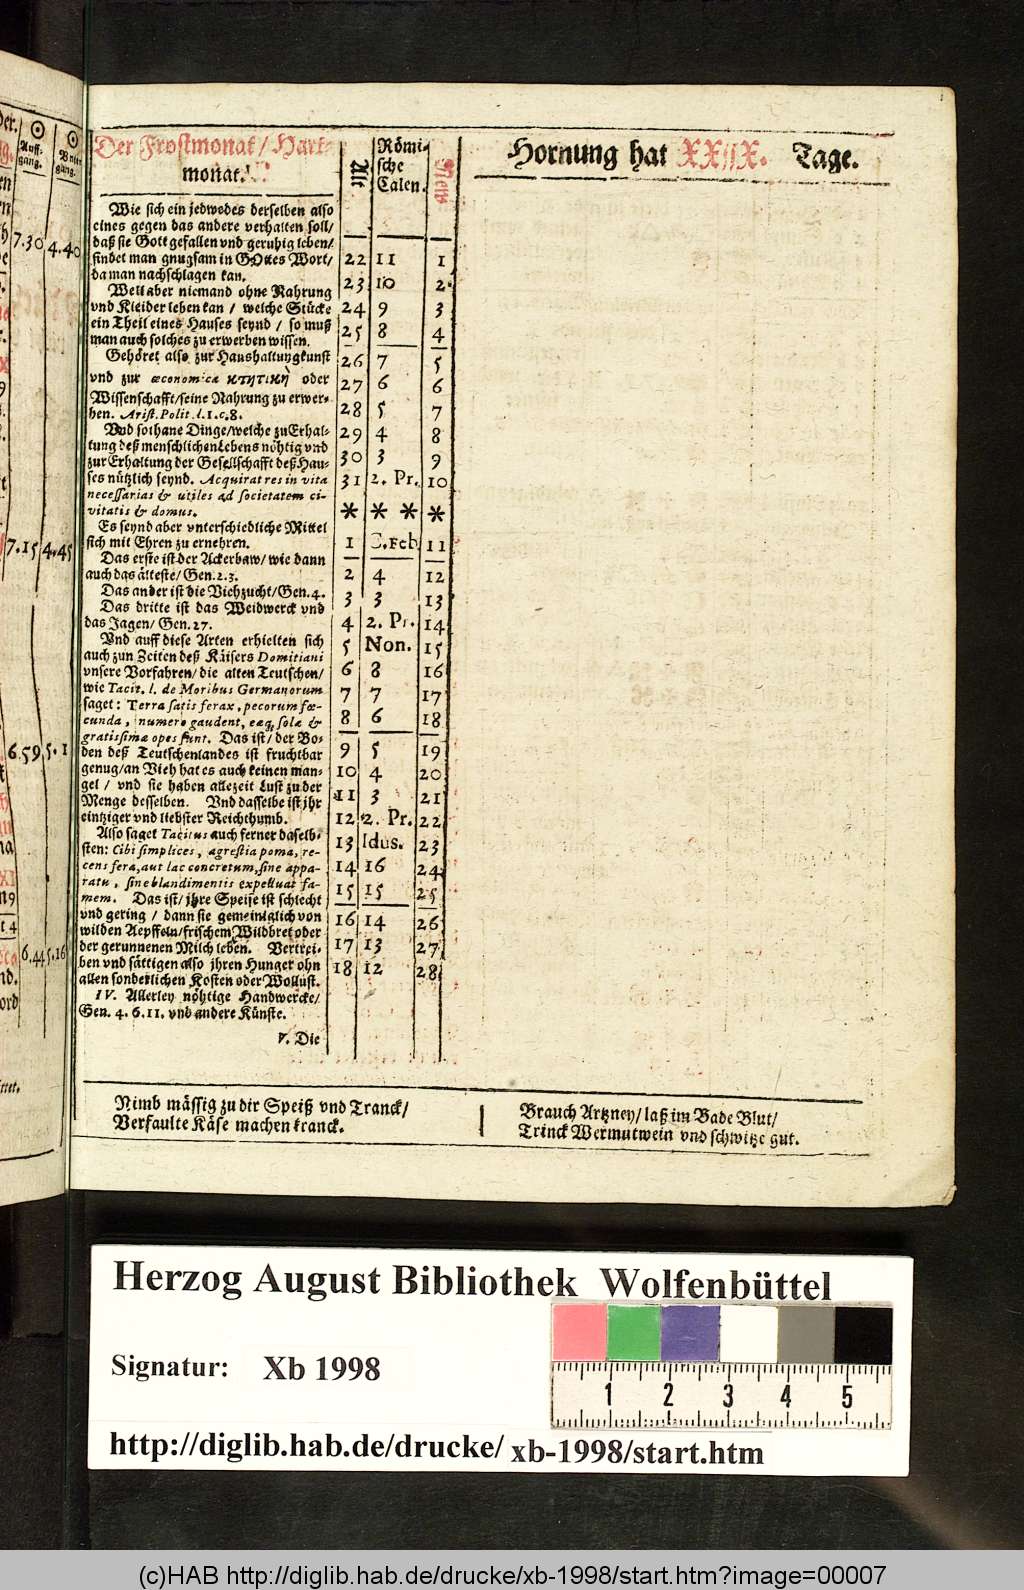 Der Frostmonat / Hart-
monat.
Wie sich ein jedwedes derselben also
eines gegen das andere verhalten soll/
daß sie Gott gefallen vnd geruhig leben/
findet man gnugsam in GOttes Wort/
da man nachschlagen kan.
Weil aber niemand ohne Nahrung
vnd Kleider leben kan / welche Stücke
ein Theil eines Hauses seynd / so muß
man auch solches zu erwerben wissen.
Gehöret also zur Haushaltungkunst
vnd zur œconomica κτητικὴ oder
Wissenschafft/seine Nahrung zu erwer-
ben. Arist. Polit. l. 1. c. 8.
Vnd sothane Dinge/welche zu Erhal-
tung deß menschlichen Lebens nöhtig vnd
zur Erhaltung der Gesellschafft deß Hau-
ses nützlich seynd. Acquirat res in vita
necessarias & utiles ad societatem ci-
vitatis & domus.
Es seynd aber vnterschiedliche Mittel
sich mit Ehren zu ernehren.
Das erste ist der Ackerbaw/ wie dann
auch das älteste/ Gen. 2. 3.
Das ander ist die Viehzucht/Gen. 4.
Das dritte ist das Weidwerck vnd
das Jagen/ Gen. 27.
Vnd auff diese Arten erhielten sich
auch zun Zeiten deß Käisers Domitiani
vnsere Vorfahren/ die alten Teutschen/
wie Tacit. l. de Moribus Germanorum
saget: Terra satis ferax, pecorum fœ-
cunda, numero gaudent, eæq; solæ &
gratissimæ opes sunt. Das ist/ der Bo-
den deß Teutschenlandes ist fruchtbar
genug/an Vieh hat es auch keinen man-
gel / vnd sie haben allezeit Lust zu der
Menge desselben. Vnd dasselbe ist jhr
eintziger vnd liebster Reichthumb.
Also saget Tacitus auch ferner daselb-
sten: Cibi simplices, agrestia poma, re-
cens fera, aut lac concretum, sine appa-
ratu, sine blandimentis expellunt fa-
mem. Das ist/ jhre Speise ist schlecht
vnd gering / dann sie gemeiniglich von
wilden Aepffeln/frischem Wildbret oder
der gerunnenen Milch leben. Vertrei-
ben vnd sättigen also jhren Hunger ohn
allen sonderlichen Kosten oder Wollust.
IV. Allerley nöhtige Handwercke/
Gen. 4. 6. 11. vnd andere Künste.
V. Die
Alt
Römi-
sche
Calen.
New
22 11 1
23 10 2
24 9 3
25 8 4
26 7 5
27 6 6
28 5 7
29 4 8
30 3 9
31 2. Pr. 10
* * * *
1 C.Feb 11
2 4 12
3 3 13
4 2. Pr. 14
5 Non. 15
6 8 16
7 7 17
8 6 18
9 5 19
10 4 20
11 3 21
12 2. Pr. 22
13 Idus. 23
14 16 24
15 15 25
16 14 26
17 13 27
18 12 28
Hornung hat XXIIX. Tage.
Nimb mässig zu dir Speiß vnd Tranck/
Verfaulte Käse machen kranck.
Brauch Artzney/ laß im Bade Blut/
Trinck Wermutwein vnd schwitze gut.
Auff-
gang.
7.30 4.40
7.15 4.45
6.59 5.1
6.44 5.16
Herzog August Bibliothek Wolfenbüttel
Signatur: Xb 1998
1 2 3 4 5
http://diglib.hab.de/drucke/ xb-1998/start.htm
(c)HAB http://diglib.hab.de/drucke/xb-1998/start.htm?image=00007